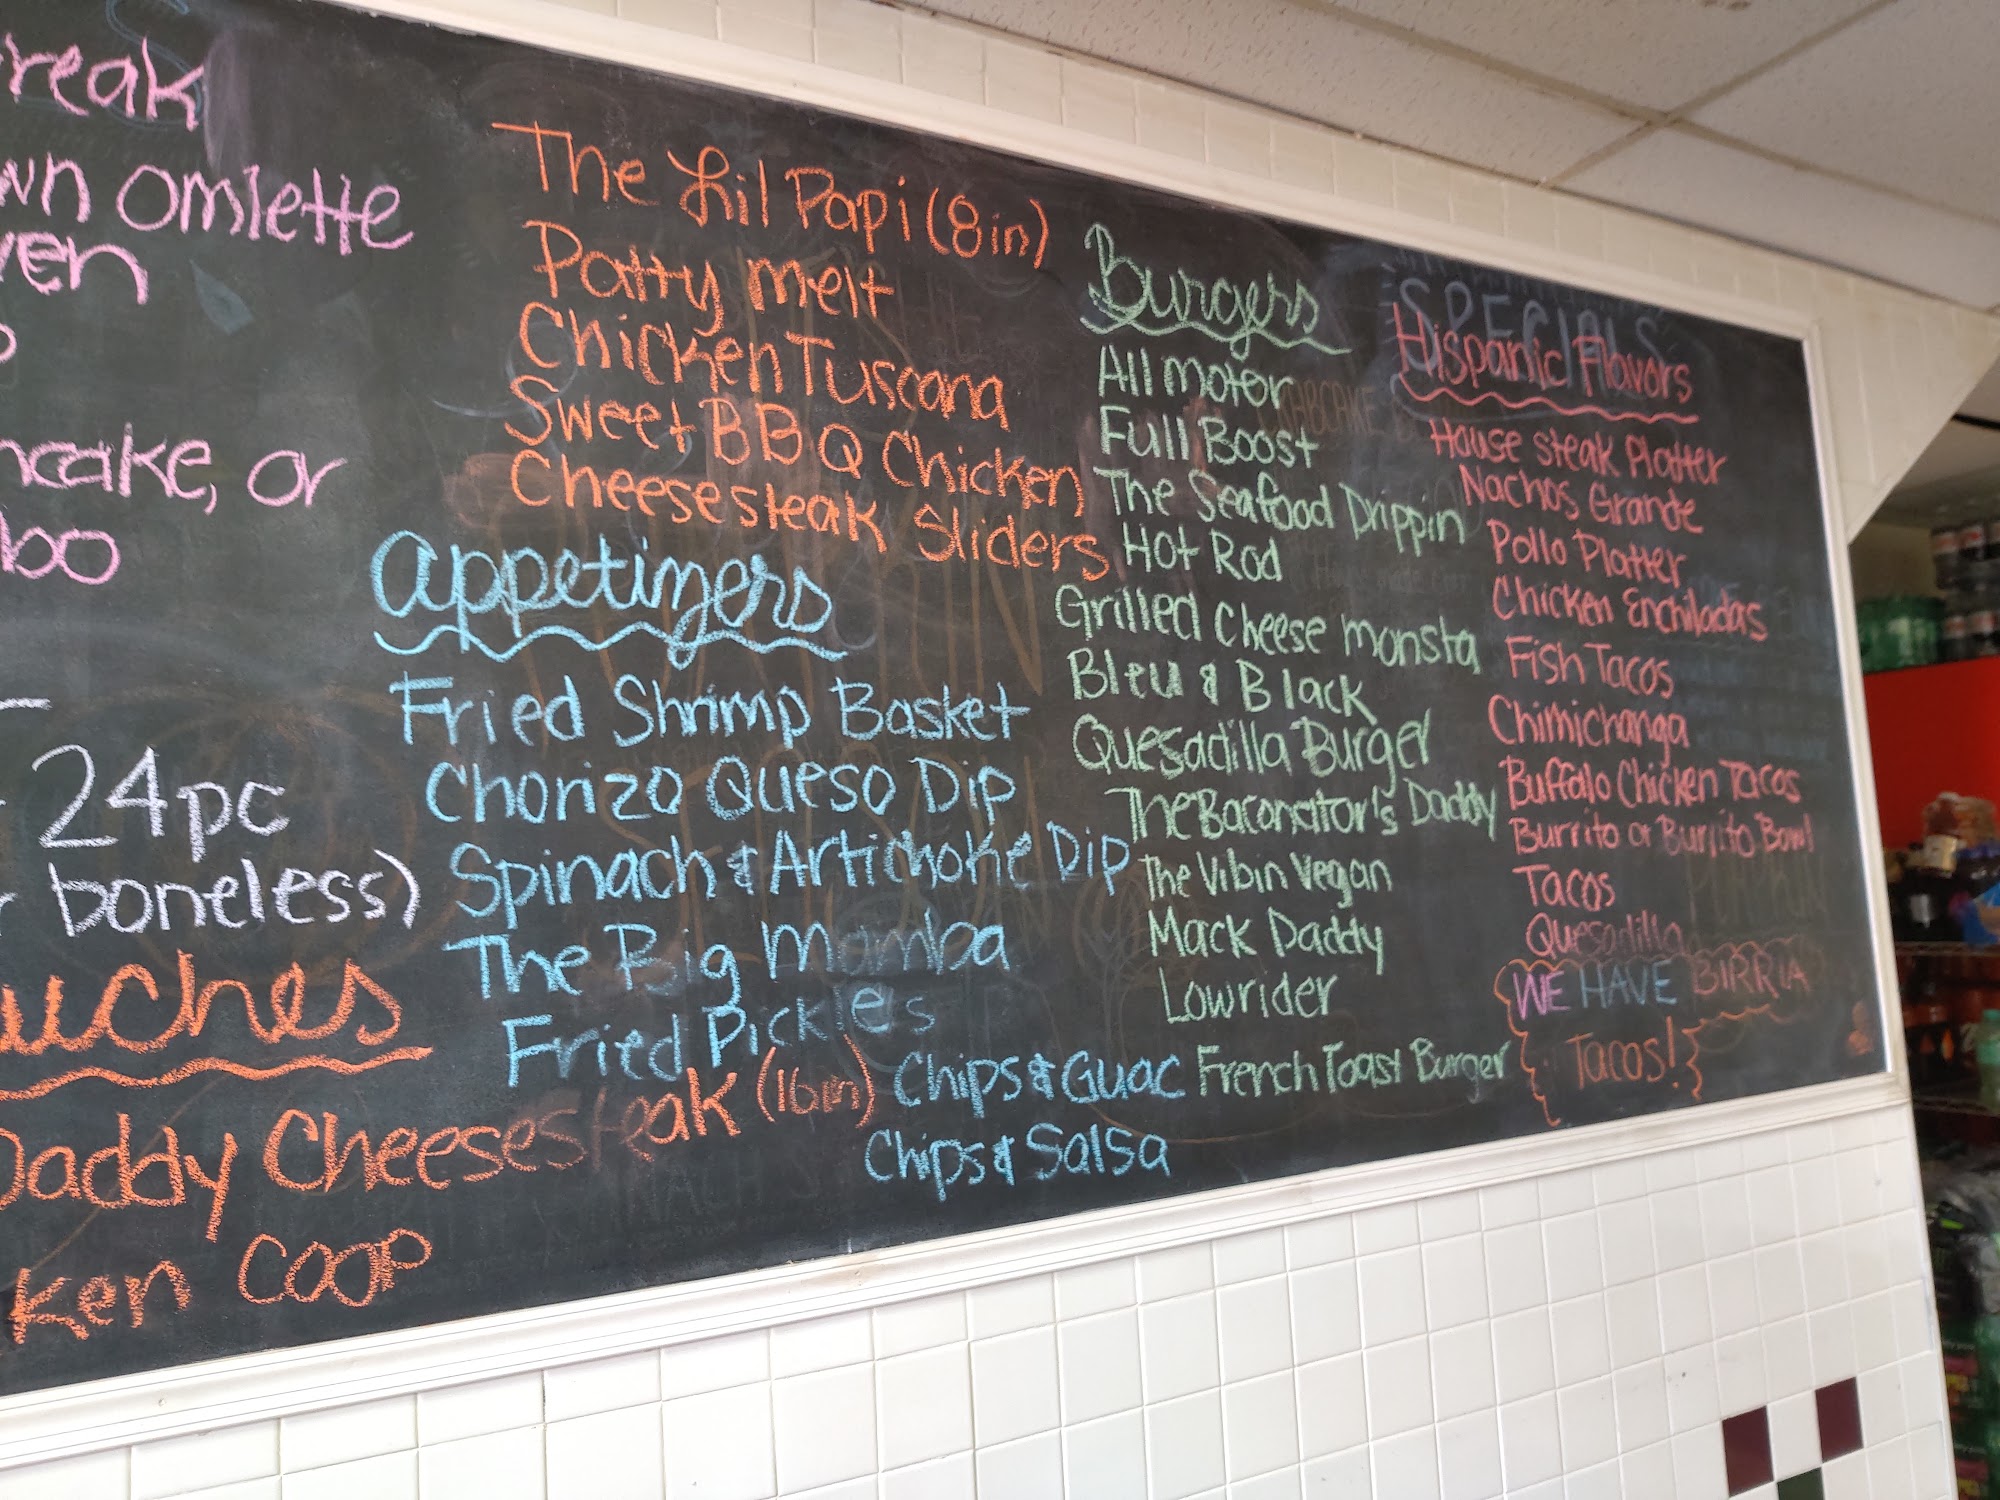 reak
wn omlette
ven
ncake, or
bo
24pc
boneless)
uches
Daddy Cheesesteak (16in)
ken COOP
The Lil Papi (8in)
Patty melt
Chicken Tuscana
Sweet BBQ Chicken
Cheesesteak Sliders
Appetizers
Fried Shrimp Basket
Chorizo Queso Dip
Spinach & Artichoke Dip
The Big Mamba
Fried Pickles
Chips & Guac
Chips & Salsa
Burgers
All motor
Full Boost
The Seafood Drippin
Hot Rod
Grilled Cheese monsta
Bleu & Black
Quesadilla Burger
The Baconator's Daddy
The Vibin Vegan
Mack Daddy
Lowrider
French Toast Burger
SPECIALS
Hispanic Flavors
House steak Platter
Nachos Grande
Pollo Platter
Chicken Enchiladas
Fish Tacos
Chimichanga
Buffalo Chicken Tacos
Burrito or Burrito Bowl
Tacos
Quesadilla
WE HAVE BIRRIA
Tacos!